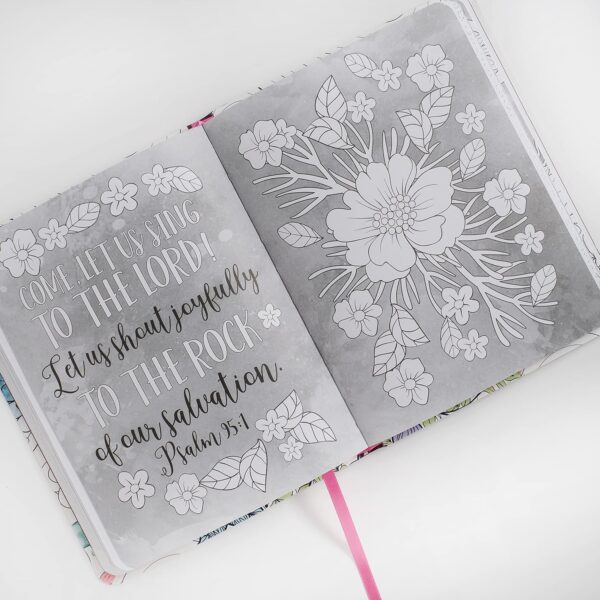 COME, LET US SING
TO THE LORD!
Let us shout joyfully
TO THE ROCK
of our salvation.
Psalm 95:1